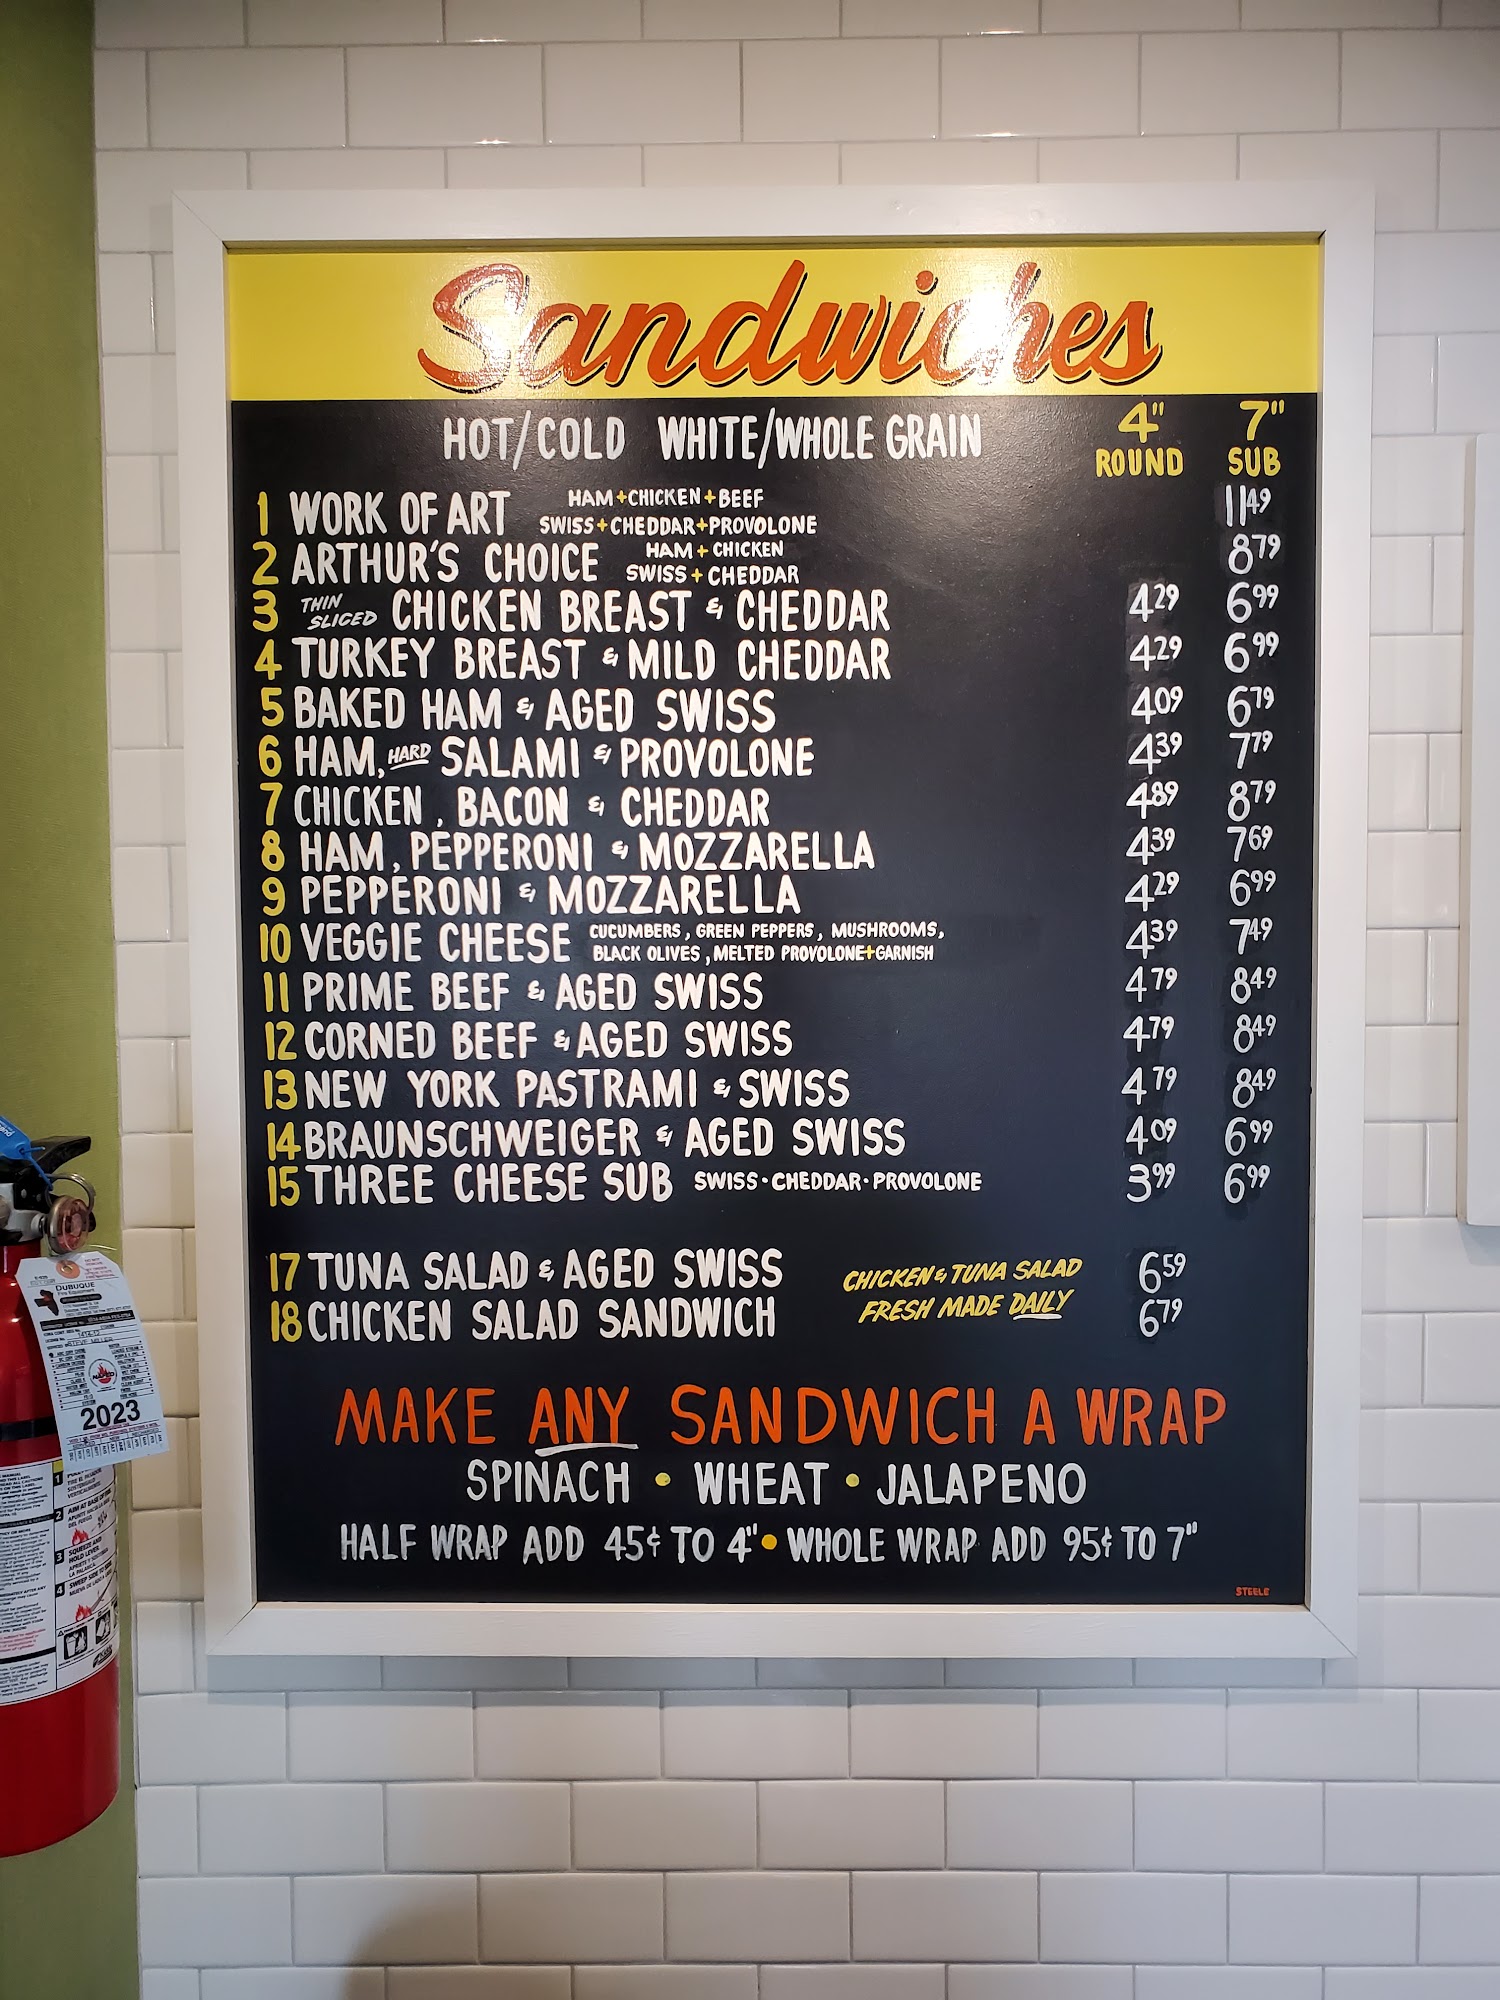 Sandwiches
HOT/COLD WHITE/WHOLE GRAIN 4" ROUND 7" SUB
1 WORK OF ART HAM+CHICKEN+BEEF SWISS+CHEDDAR+PROVOLONE 11 49
2 ARTHUR'S CHOICE HAM+CHICKEN SWISS+CHEDDAR 8 79
3 THIN SLICED CHICKEN BREAST & CHEDDAR 4 29 6 99
4 TURKEY BREAST & MILD CHEDDAR 4 29 6 99
5 BAKED HAM & AGED SWISS 4 09 6 79
6 HAM, HARD SALAMI & PROVOLONE 4 39 7 79
7 CHICKEN, BACON & CHEDDAR 4 89 8 79
8 HAM, PEPPERONI & MOZZARELLA 4 39 7 69
9 PEPPERONI & MOZZARELLA 4 29 6 99
10 VEGGIE CHEESE CUCUMBERS, GREEN PEPPERS, MUSHROOMS, BLACK OLIVES, MELTED PROVOLONE+GARNISH 4 39 7 49
11 PRIME BEEF & AGED SWISS 4 79 8 49
12 CORNED BEEF & AGED SWISS 4 79 8 49
13 NEW YORK PASTRAMI & SWISS 4 79 8 49
14 BRAUNSCHWEIGER & AGED SWISS 4 09 6 99
15 THREE CHEESE SUB SWISS·CHEDDAR·PROVOLONE 3 99 6 99
17 TUNA SALAD & AGED SWISS 6 59
18 CHICKEN SALAD SANDWICH 6 79
CHICKEN & TUNA SALAD
FRESH MADE DAILY
MAKE ANY SANDWICH A WRAP
SPINACH • WHEAT • JALAPENO
HALF WRAP ADD 45¢ TO 4" • WHOLE WRAP ADD 95¢ TO 7"
STEELE
DUBUQUE
Fire Equipment
2023